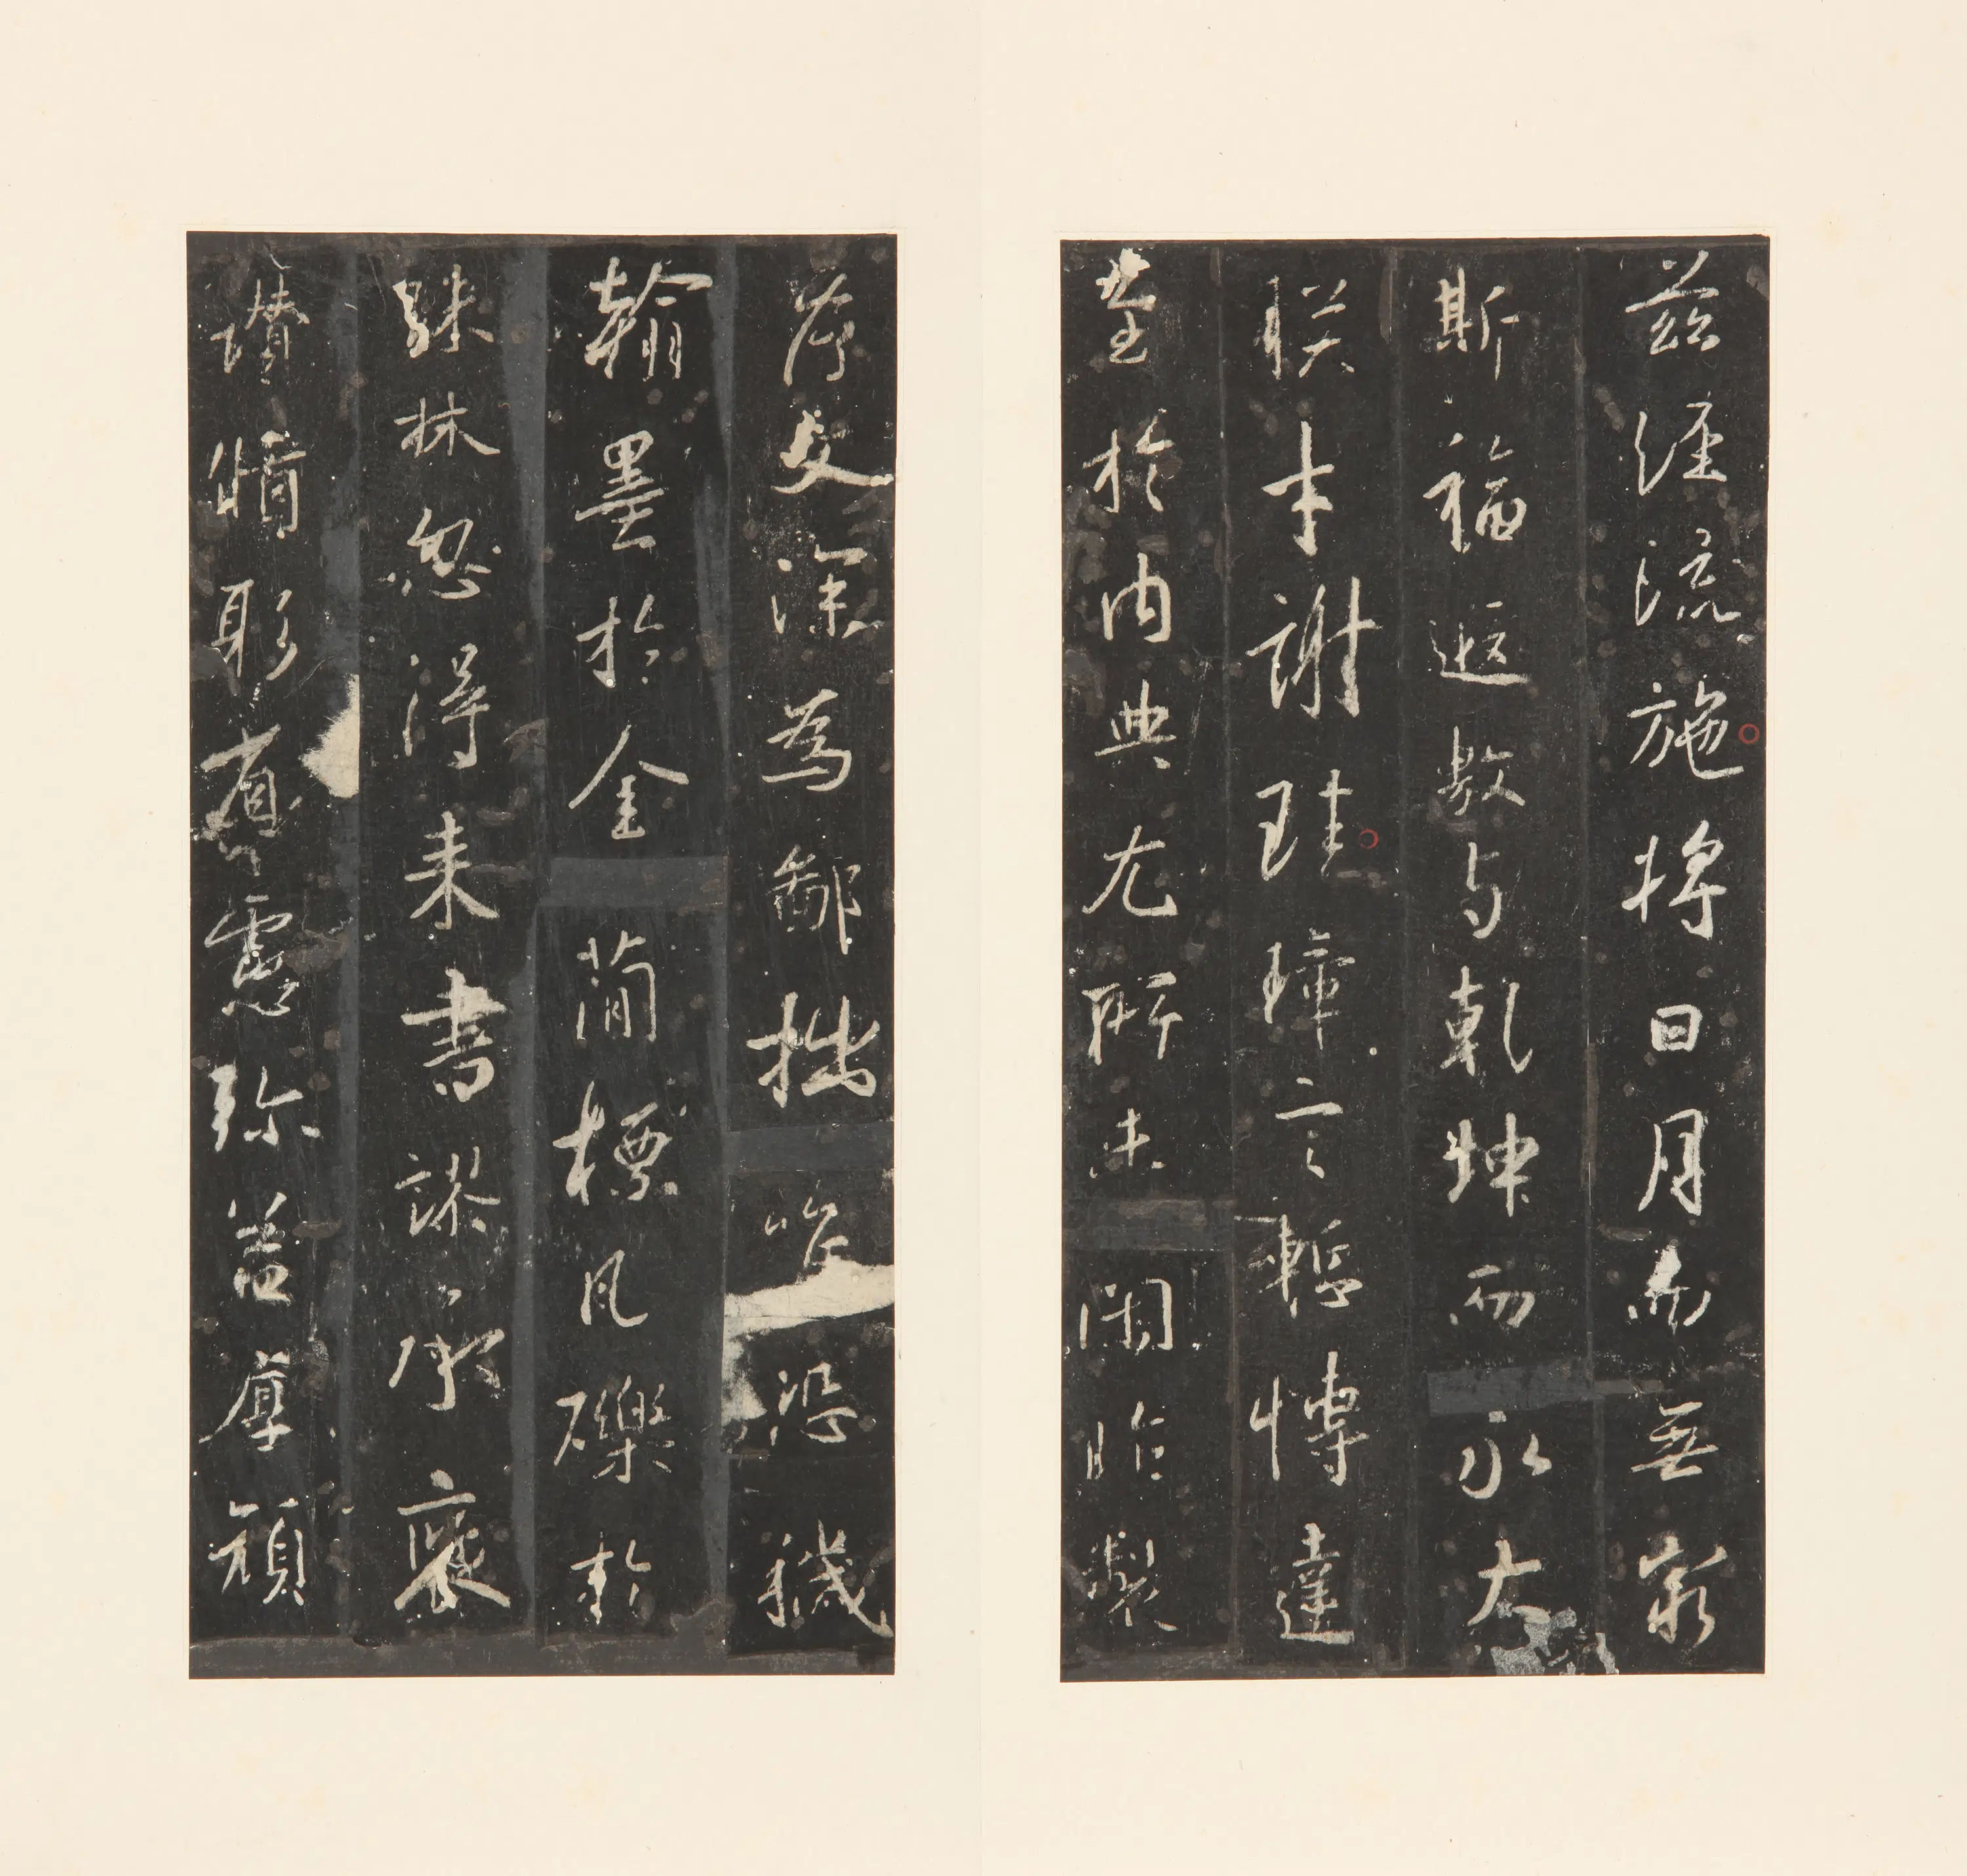 茲經流施將日月而無窮
斯福遐敷与乾坤而永大
朕才謝珪璋言慙愽達
至於內典尤所未閑昨製
序文深為鄙拙唯恐穢
翰墨於金簡標瓦礫於
珠林忽得来書謬承褒
讃循躬省慮弥益厚顔